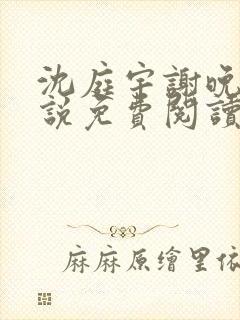 沈庭宇謝晚
説免費閱讀
麻麻原繪里依